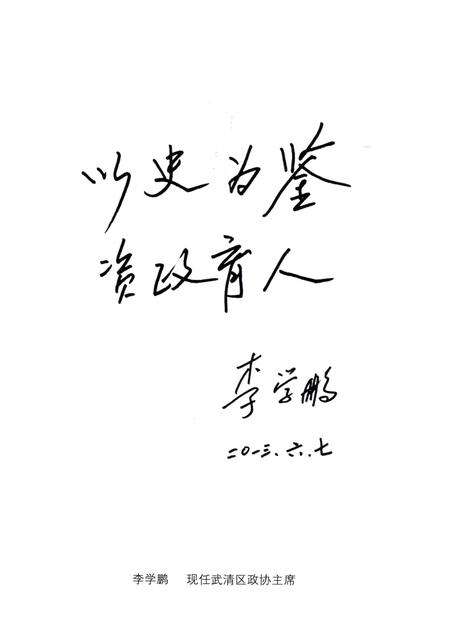 以史为鉴
资政育人
李学鹏
二〇一三.六.七
李学鹏 现任武清区政协主席